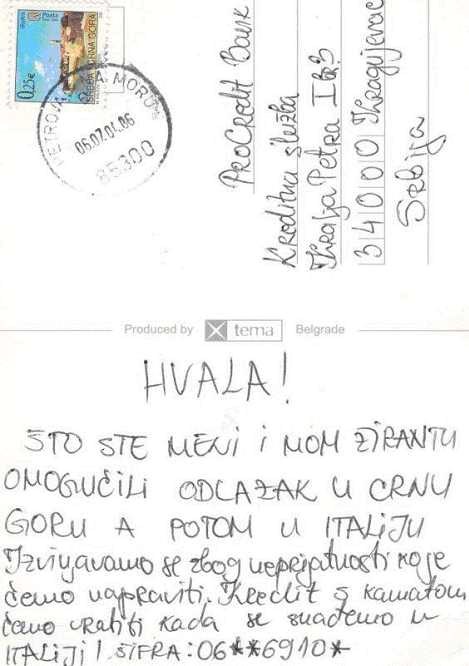 Pošta
0,25€
SRBIJA I CRNA GORA
PETROVAC NA MORU
06.07.04.06
85300
ProCredit Bank
Kreditna služba
Kralja Petra I BR3
34000 Kragujevac
Srbija
Produced by tema Belgrade
HVALA!
ŠTO STE MENI I MOM ŽIRANTU
OMOGUČILI ODLAZAK U CRNU
GORU A POTOM U ITALIJU
Izvinjavamo se zbog neprijatnosti koje
ćemo napraviti. Kredit s kamatom
ćemo vratiti kada se snađemo u
ITALIJI! ŠIFRA: 06**6910*